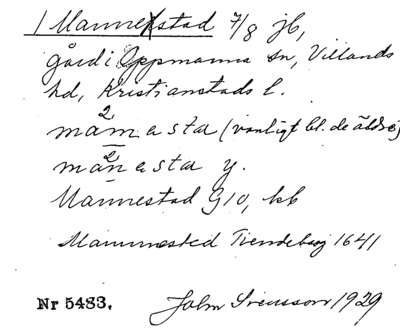 1 Mannestad 7/8 jb,
gård i Oppmanna sn, Villands
hd, Kristianstads l.
mam̄a sta (vanligt bl. de äldre)
man̄a sta y.
Mannestad G10, kb
Mannested Tiendebog 1641
Nr 5483. John Svensson 1929